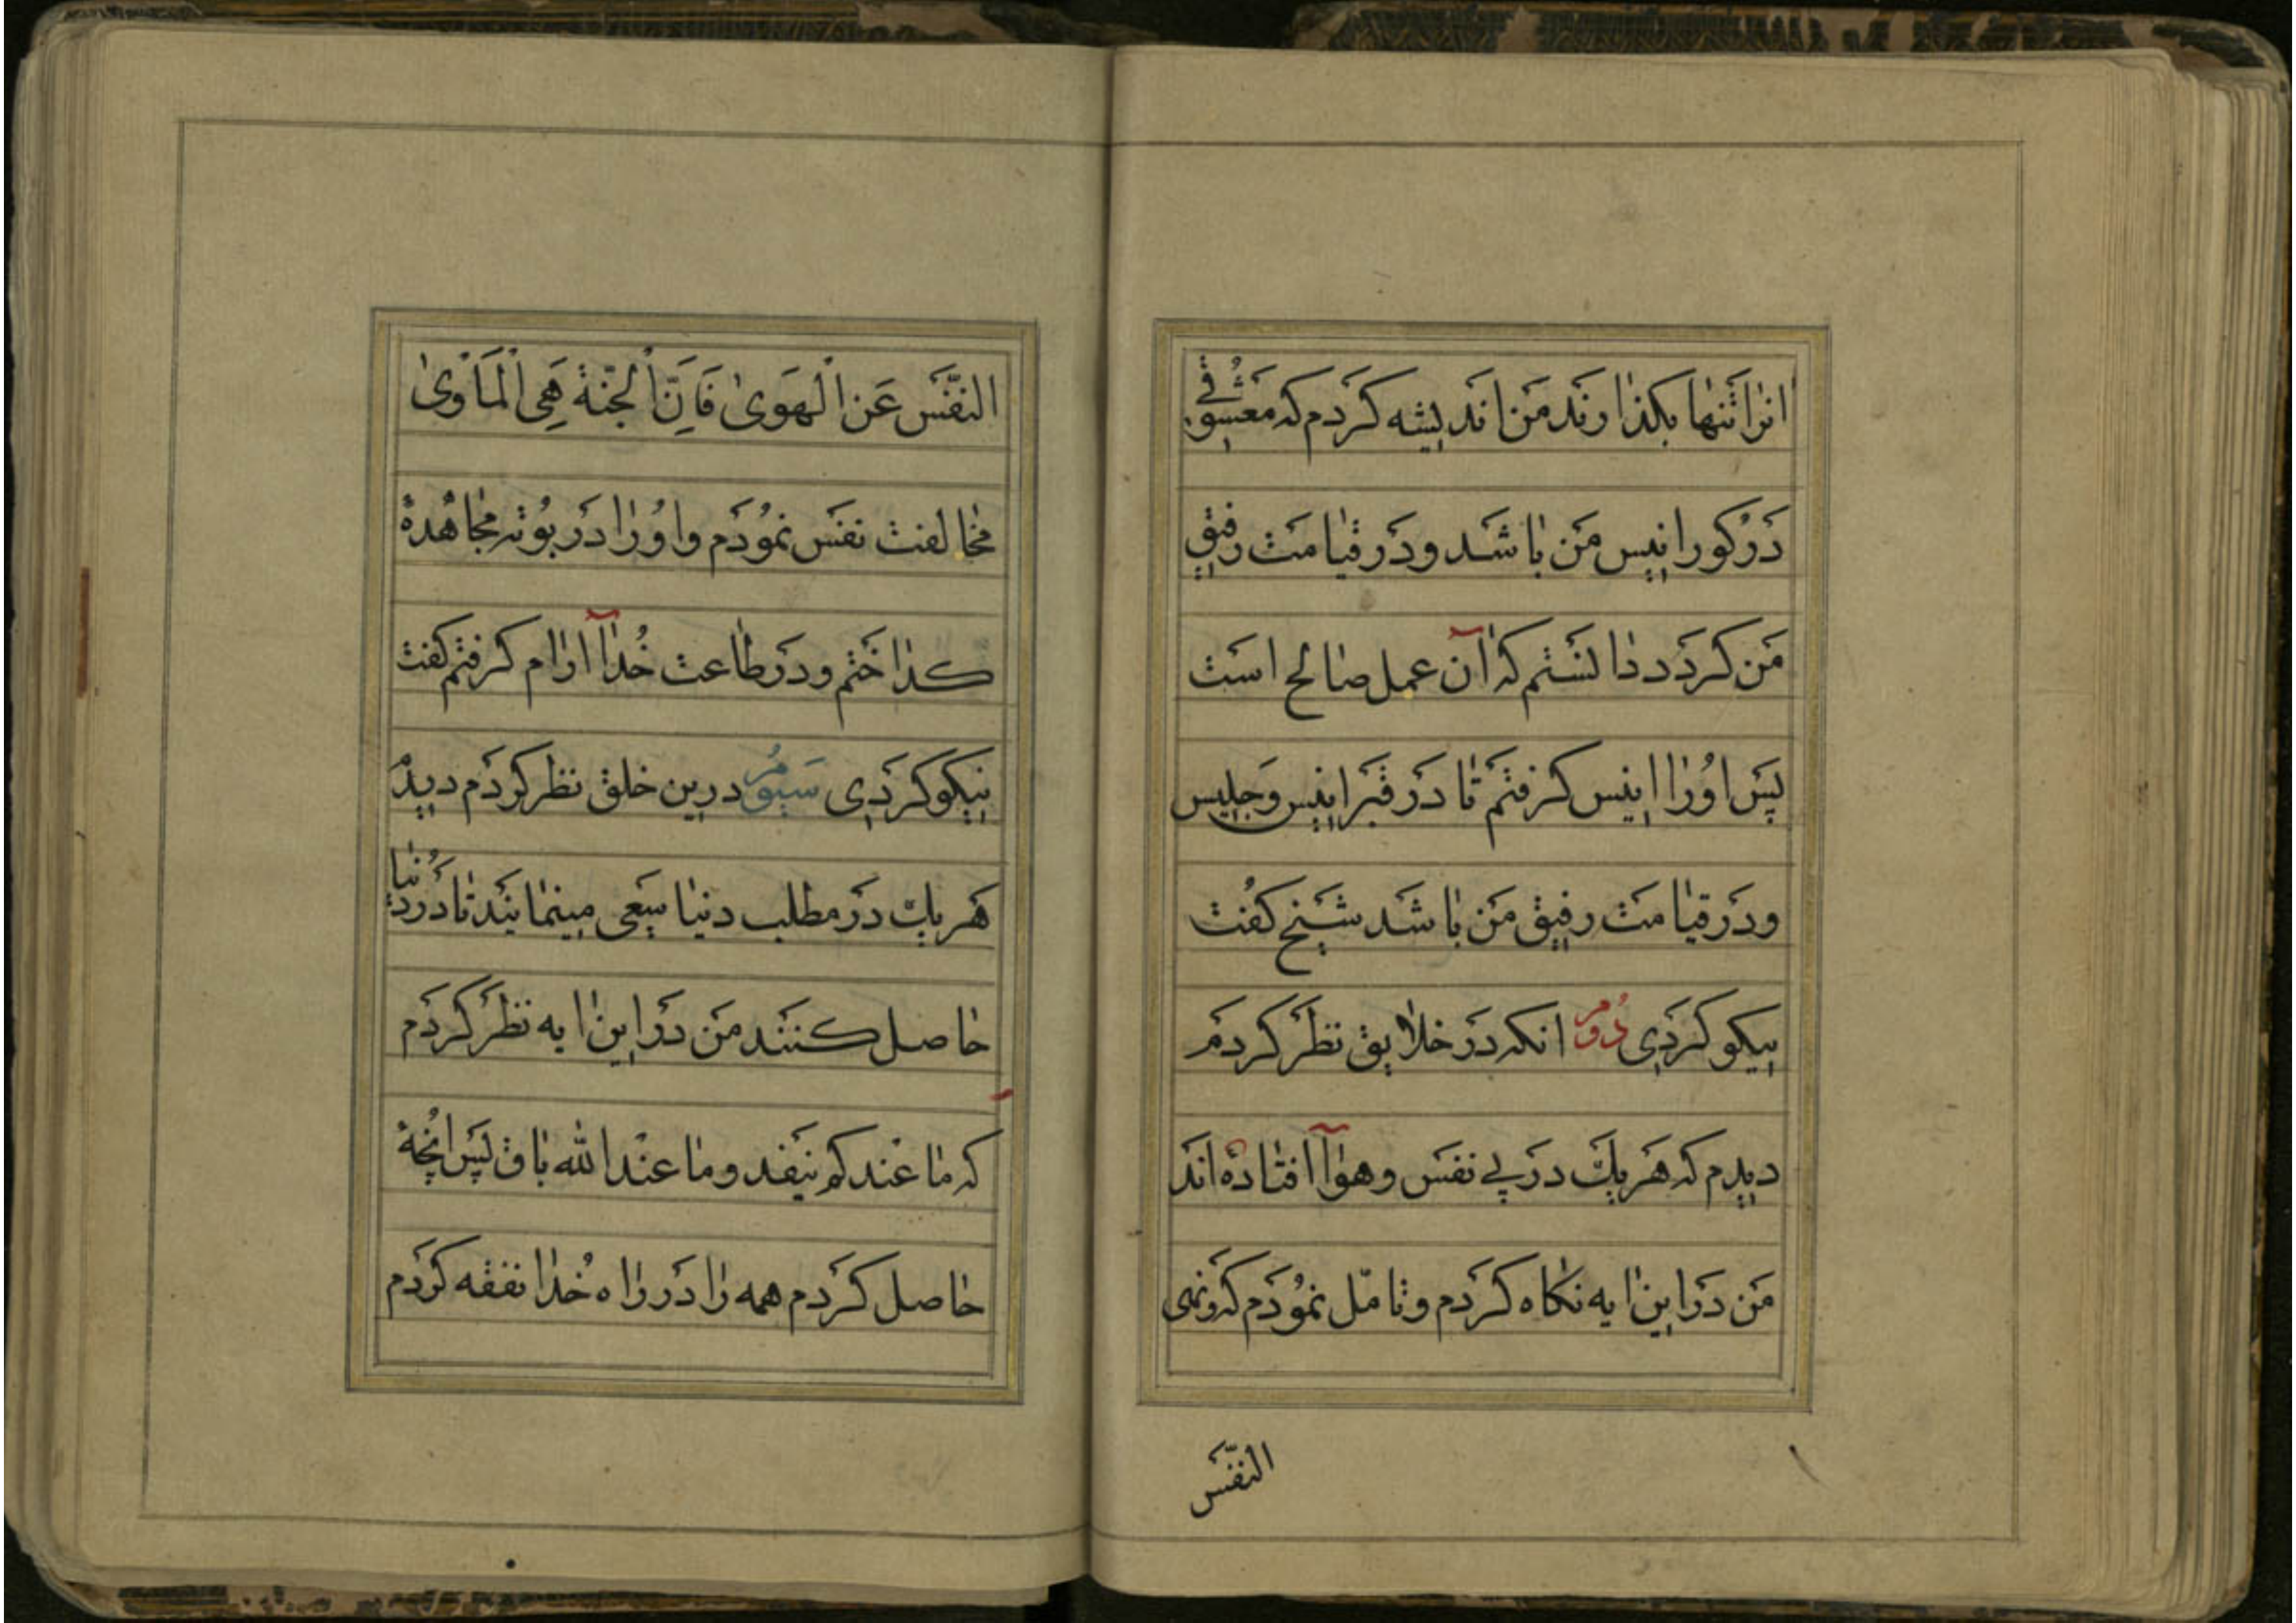 انرا تنها بكذارند من اندیشه کردم که معشوقی
در کور انیس من باشد و در قیامت رفیق
من کردد دانستم که آن عمل صالح است
پس اورا انیس کرفتم تا در قبر انیس وجلیس
ودر قیامت رفیق من باشد شیخ کفت
نیکو کردی دوم انکه در خلایق نظر کردم
دیدم که هر یك در پی نفس وهوا افتاده اند
من در این ایه نکاه کردم وتامّل نمودم که ونهی
النّفس
النّفَس عَنِ الْهَوىٰ فَاِنَّ الْجنّة هِیَ الْمَأوىٰ
مخالفت نفس نمودم واورا در بوته مجاهدهٔ
کداختم ودر طاعت خدا آرام کرفتم کفت
نیکو کردی سیوم درین خلق نظر کردم دیدم
هر یك در مطلب دنیا سعی مینمایند تا در دنیا
حاصل کنند من در این ایه نظر کردم
که ما عندکم ینفد وما عند الله باق پس انچهٔ
حاصل کردم همه را در راه خدا نفقه کردم